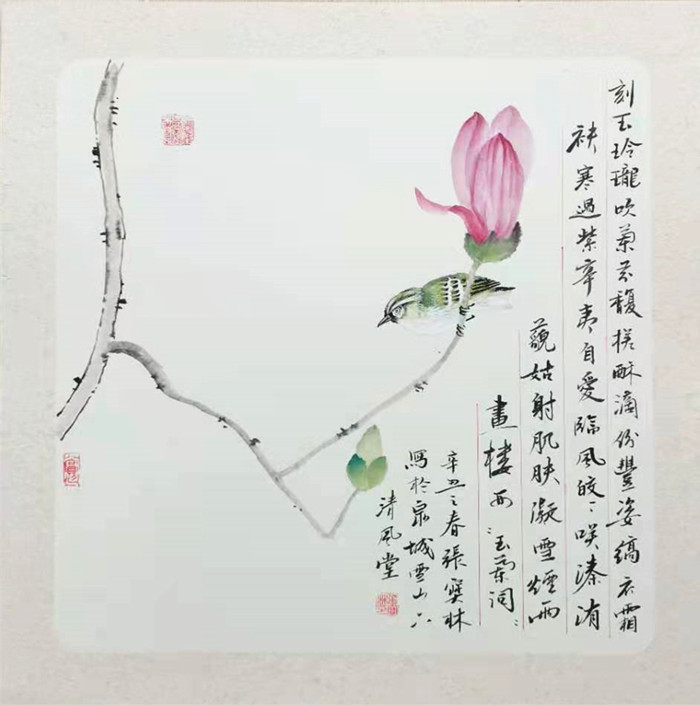 刻玉玲瓏吹蘭芬馥搓酥滴份豐姿縞衣霜
袂寒過紫辛夷自愛臨風皎〻咲溱洧
藐姑射肌肤凝雪煙雨
畫楼西〻玉蘭詞〻
辛丑之春張寶林
寫於泉城雪山六
清風堂